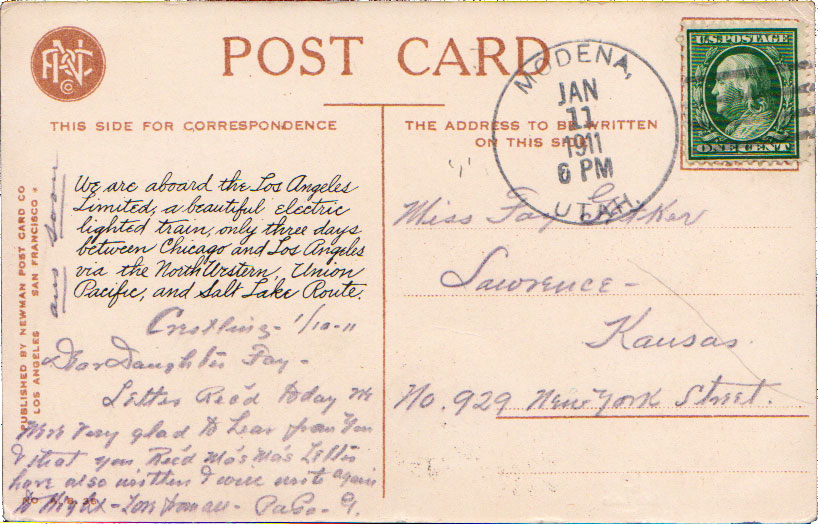 POST CARD
THIS SIDE FOR CORRESPONDENCE
THE ADDRESS TO BE WRITTEN
ON THIS SIDE
MODENA,
JAN
11
1911
6 PM
UTAH.
U.S. POSTAGE
ONE CENT
PUBLISHED BY NEWMAN POST CARD CO
LOS ANGELES SAN FRANCISCO
ans soon
We are aboard the Los Angeles
Limited, a beautiful electric
lighted train, only three days
between Chicago and Los Angeles
via the North Western, Union
Pacific, and Salt Lake Route.
1/10-11
Dear Daughter Fay-
Letter Rec'd today We
Were Very glad to hear from You
& that you Rec'd Ma's Letter
have also written I will write again
to Night - Love from all - Pa
Miss Fay
Lawrence-
Kansas.
No. 929 New York Street.